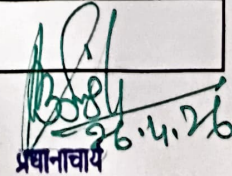 26.4.26
प्रधानाचार्य